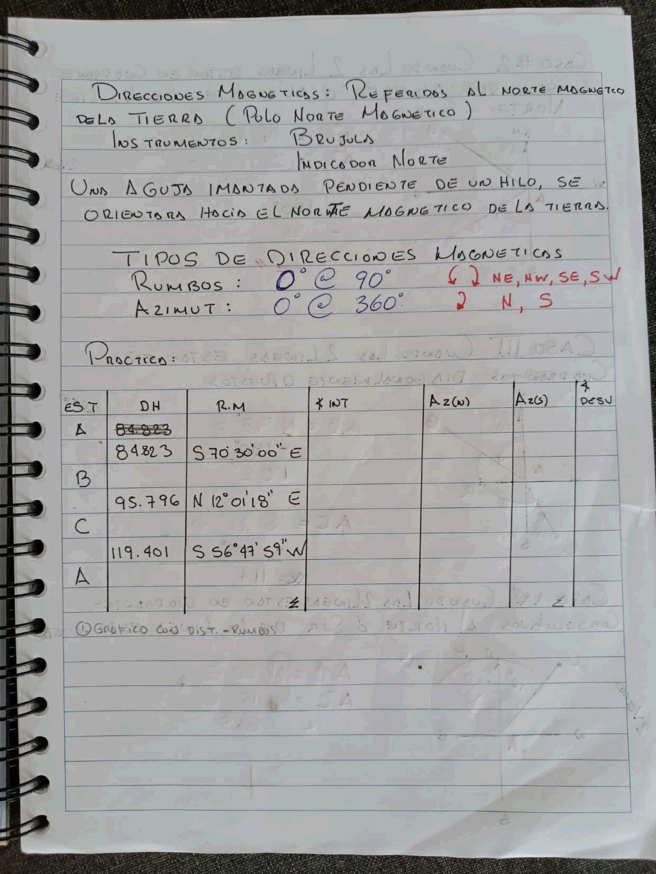 DIRECCIONES MAGNETICAS: REFERIDOS AL NORTE MAGNETICO
DE LA TIERRA (POLO NORTE MAGNETICO)
INSTRUMENTOS: BRUJULA
INDICADOR NORTE
UNA AGUJA IMANTADA PENDIENTE DE UN HILO, SE
ORIENTARA HACIA EL NORTE MAGNETICO DE LA TIERRA.
TIPOS DE DIRECCIONES MAGNETICAS
RUMBOS: 0° @ 90° NE, NW, SE, SW
AZIMUT: 0° @ 360° N, S
PRACTICA:
EST DH R.M ∡ INT AZ(N) AZ(S) ∡ DESV
A 84.823
84.823 S 70°30'00" E
B
95.796 N 12°01'18" E
C
119.401 S 56°47'59" W
A
Σ Σ
① GRÁFICO CON DIST.-RUMBOS